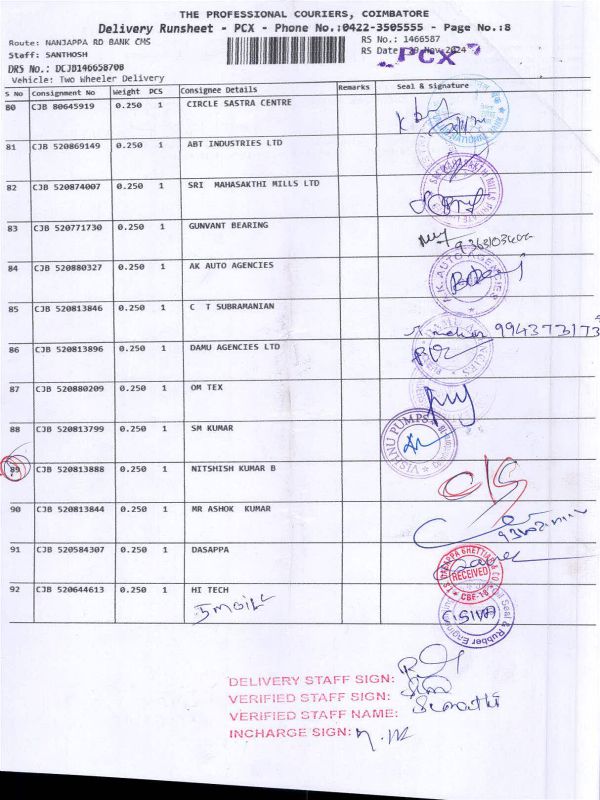 THE PROFESSIONAL COURIERS, COIMBATORE
Delivery Runsheet - PCX - Phone No.:0422-3505555 - Page No.:8
Route: NANJAPPA RD BANK CMS RS No.: 1466587
Staff: SANTHOSH RS Date : 29 Nov 2024
PCX
DRS No.: DCJB14665870B
Vehicle: Two Wheeler Delivery
S No Consignment No Weight PCS Consignee Details Remarks Seal & Signature
80 CJB 80645919 0.250 1 CIRCLE SASTRA CENTRE
81 CJB 520869149 0.250 1 ABT INDUSTRIES LTD
82 CJB 520874007 0.250 1 SRI MAHASAKTHI MILLS LTD
83 CJB 520771730 0.250 1 GUNVANT BEARING
84 CJB 520880327 0.250 1 AK AUTO AGENCIES
A.K. AUTO AGENCIES
85 CJB 520813846 0.250 1 C T SUBRAMANIAN
994373173
86 CJB 520813896 0.250 1 DAMU AGENCIES LTD
87 CJB 520880209 0.250 1 OM TEX
88 CJB 520813799 0.250 1 SM KUMAR
VISHNU PUMPS
89 CJB 520813888 0.250 1 NITSHISH KUMAR B
O/S
90 CJB 520813844 0.250 1 MR ASHOK KUMAR
91 CJB 520584307 0.250 1 DASAPPA
RECEIVED
CBE-18
92 CJB 520644613 0.250 1 HI TECH
Oil Seal & Rubber Engineering
C. SIVA
DELIVERY STAFF SIGN:
VERIFIED STAFF SIGN:
VERIFIED STAFF NAME:
INCHARGE SIGN: